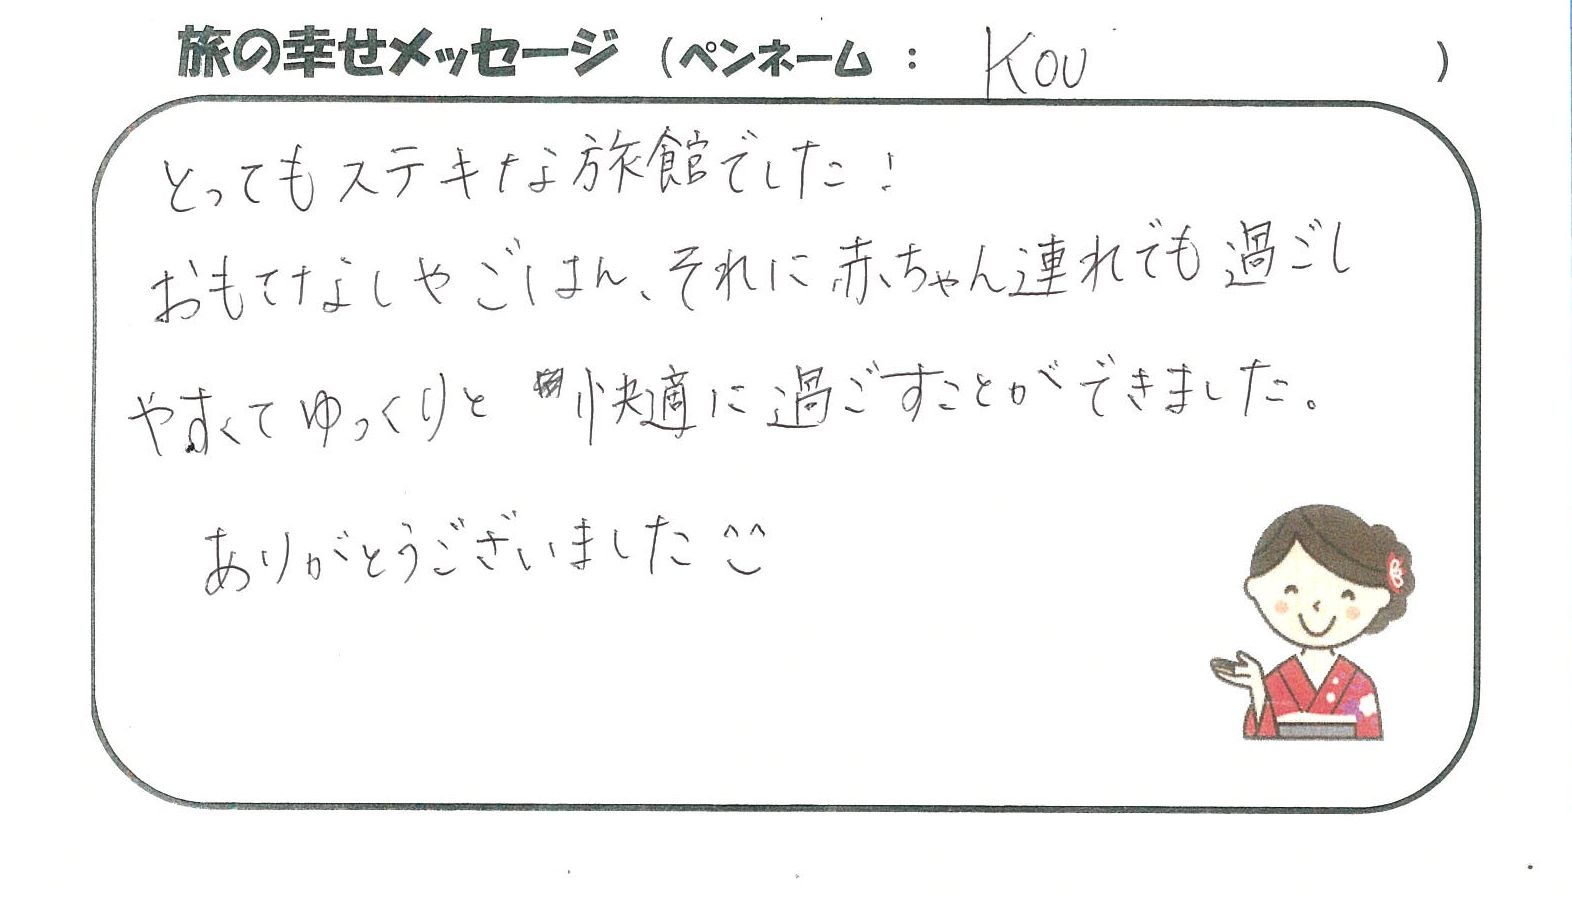 旅の幸せメッセージ (ペンネーム : KOU )
とってもステキな旅館でした!
おもてなしやごはん、それに赤ちゃん連れでも過ごし
やすくてゆっくりと快適に過ごすことができました。
ありがとうございました^^